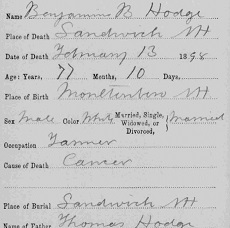 Name Benjamin B Hodge
Place of Death Sandwich NH
Date of Death February 13 1898
Age: Years, 77 Months, 10 Days,
Place of Birth Moultonboro NH
Sex Male Color White Married, Single, Widowed, or Divorced, } Married
Occupation Farmer
Cause of Death Cancer
Place of Burial Sandwich NH
Name of Father Thomas Hodge